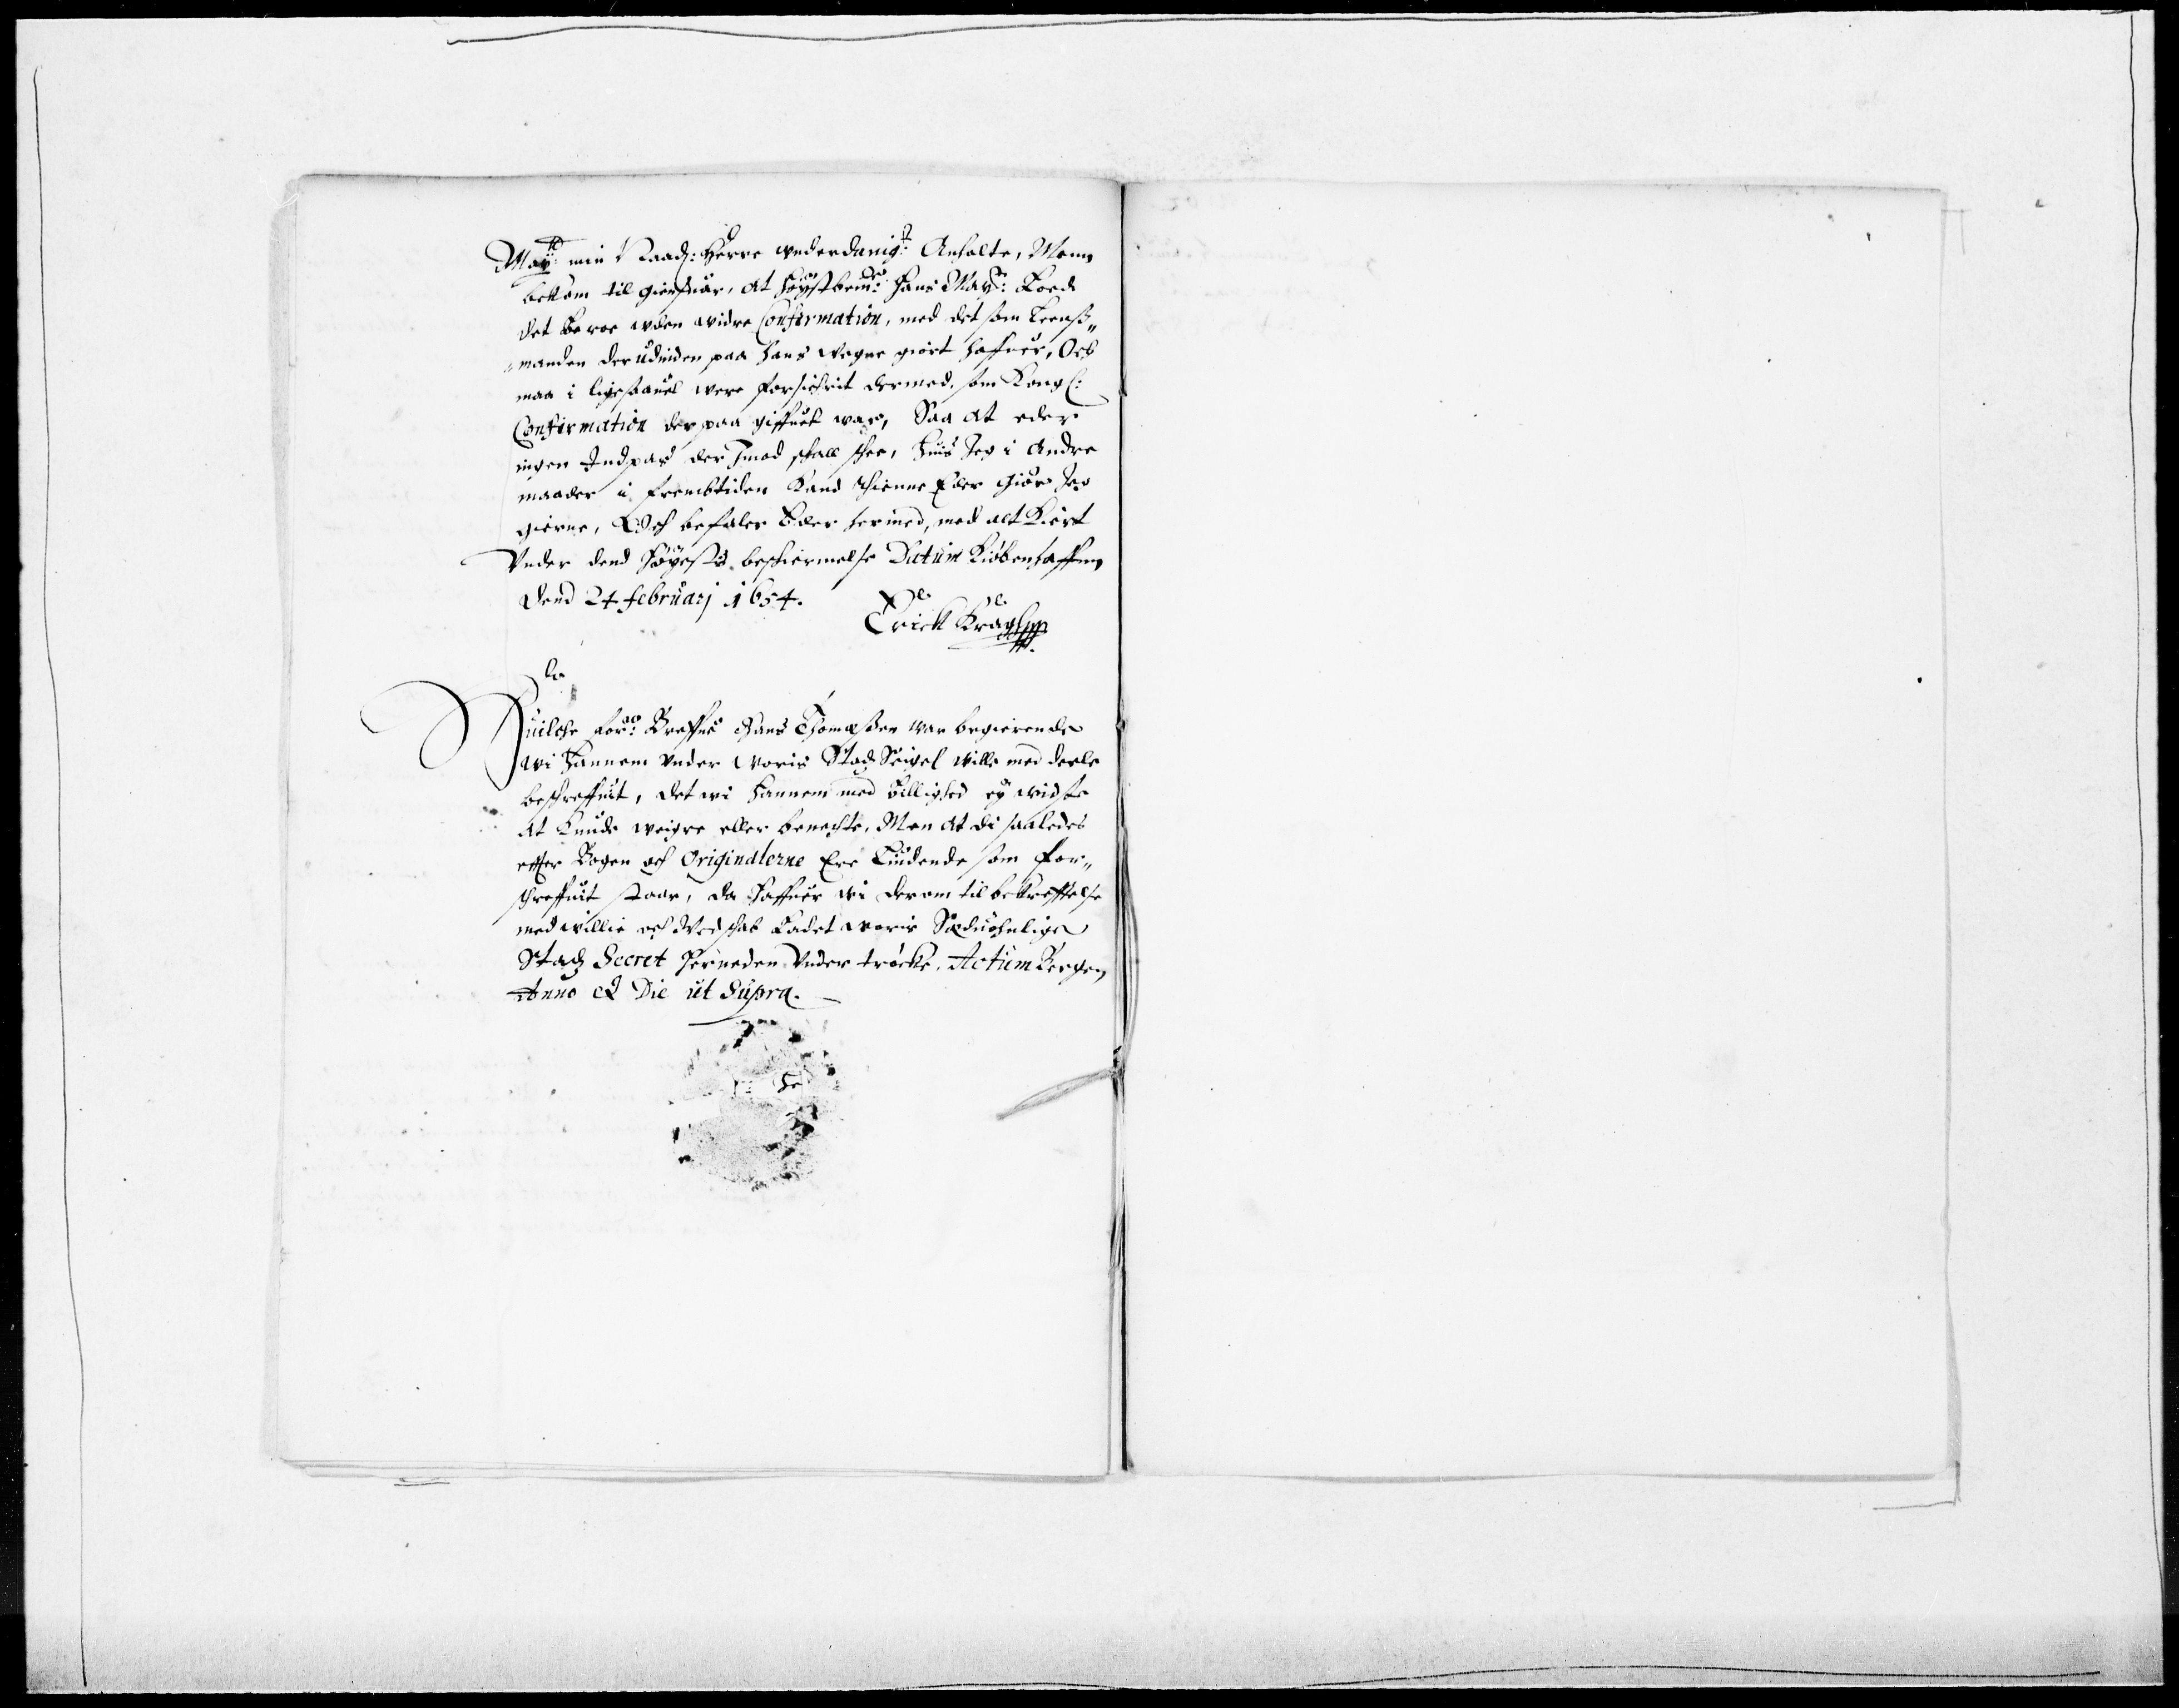 May:tt min Naad: Herre underdanig:t Anholte, Menn
bekom til giensuar, at høystbem:te Hans May:tt Loed
det beroe uden widre Confirmation, med det som Leens„
„manden der udinden paa Hans wegne giort haffuer, Och
maa i ligesaauel were forsichrit dermed, som Kongl:
Confirmation der paa giffuet war, Saa at eder
ingen Indpas der Imod skall skee, Huis Jeg i Andre
maader i fremtiden kand thienne Eder Giør Jeg
gierne, Och befaler Eder hermed, med alt Kiert
Under dend Høyestis beskiermelse Datum Kiøbenhaffen
Dend 24 februarj 1654.
Erick Krag
Huilche for:ne Breffue Hans Thomesen war begierende
wi hannem under woris Stadz Seigel wille med deele
beskreffuit, det wi hannem med billighed ey widste
at kunde weigre eller benechte. Men at di saaledes
efter Bogen och Originalerne Ere Liudende som for„
schreffuit staar, da haffuer wi derom til bekrefftelse
med willie och Wedskab Ladet woris Sæduohnlige
Stadz Secret herneden under tröcke. Actum Bergen
Anno et Die ut Supra.